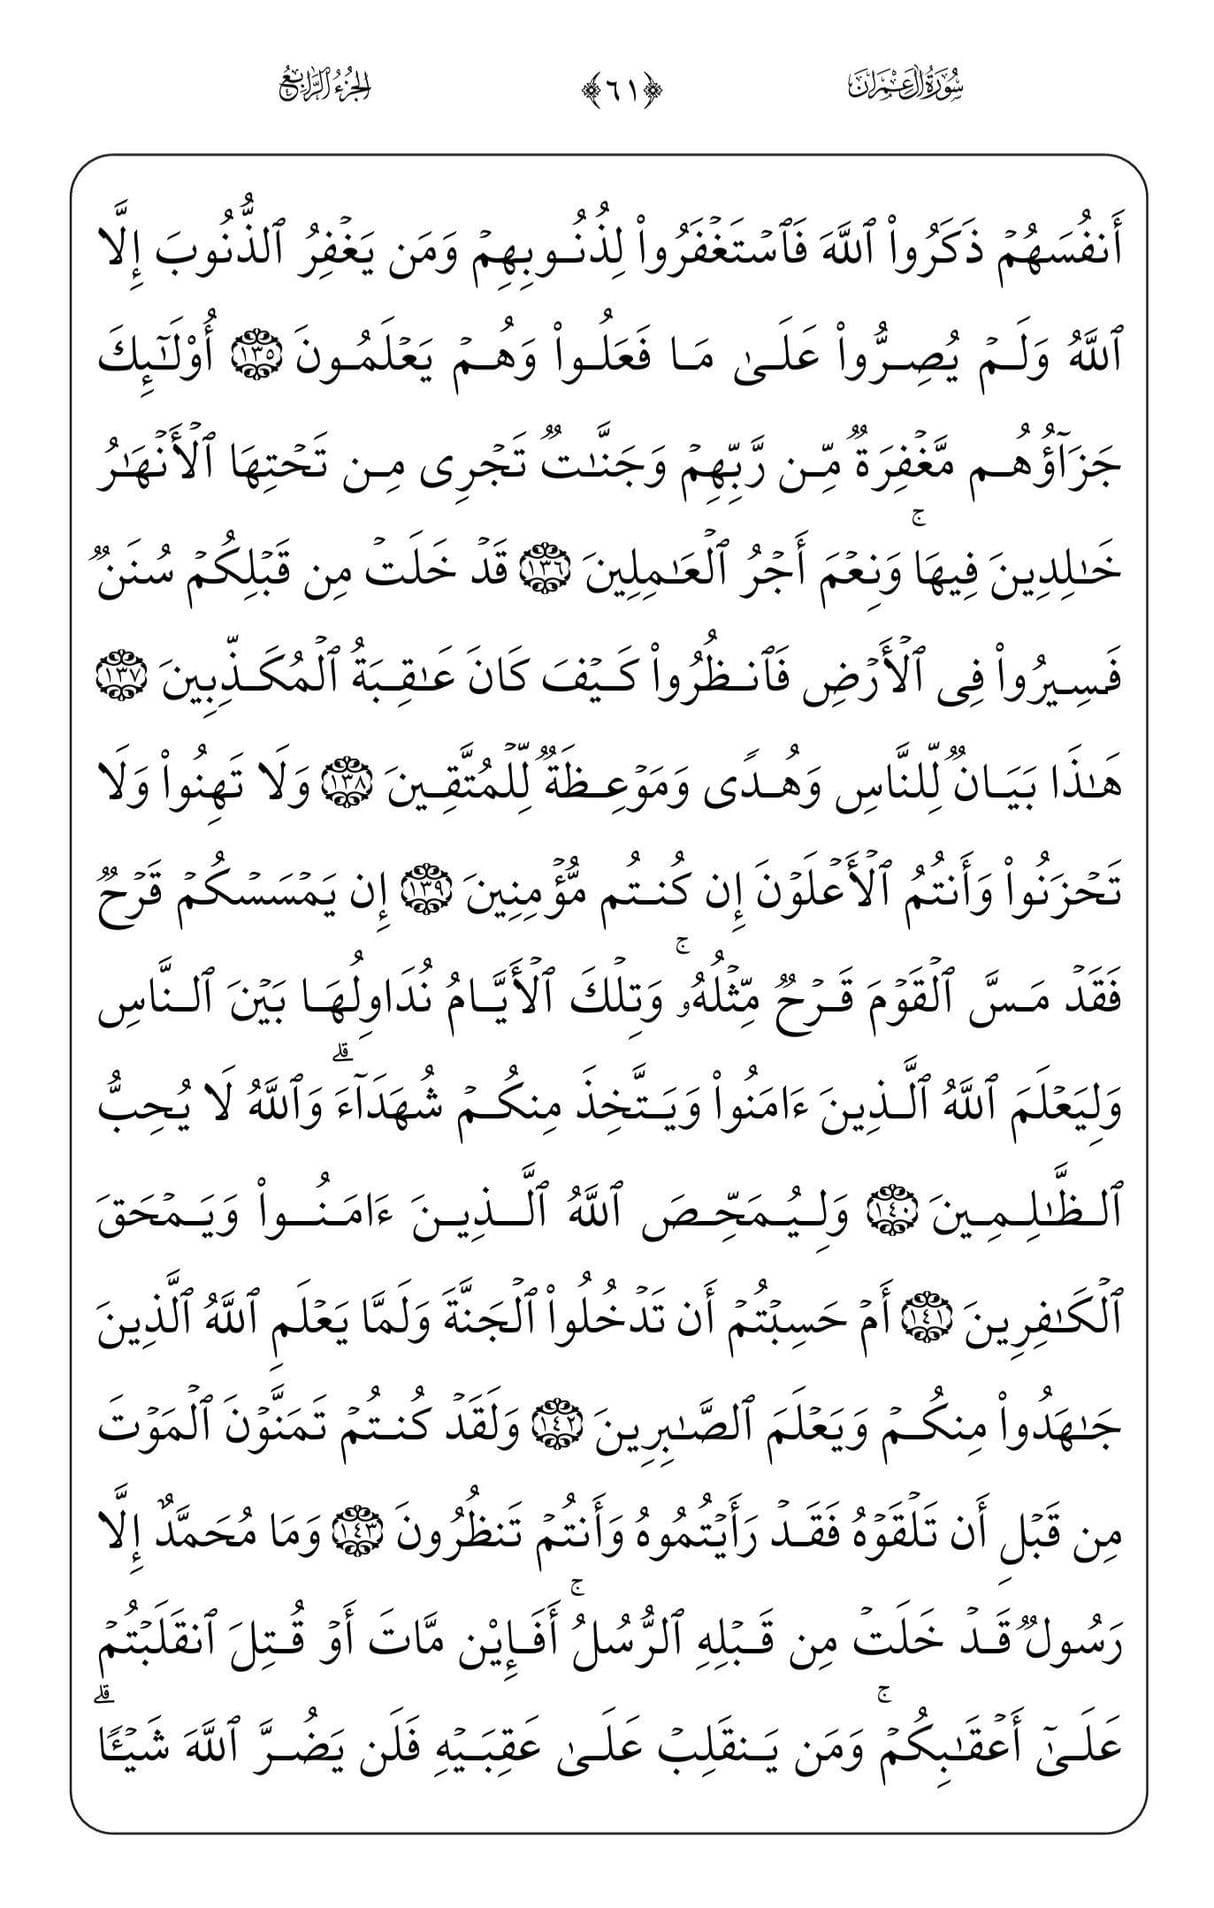 سُورَةُ آلِ عِمْرَانَ ﴿٦١﴾ الجُزْءُ الرَّابِعُ
أَنفُسَهُمۡ ذَكَرُواْ ٱللَّهَ فَٱسۡتَغۡفَرُواْ لِذُنُوبِهِمۡ وَمَن يَغۡفِرُ ٱلذُّنُوبَ إِلَّا
ٱللَّهُ وَلَمۡ يُصِرُّواْ عَلَىٰ مَا فَعَلُواْ وَهُمۡ يَعۡلَمُونَ ١٣٥ أُوْلَٰٓئِكَ
جَزَآؤُهُم مَّغۡفِرَةٌ مِّن رَّبِّهِمۡ وَجَنَّٰتٌ تَجۡرِى مِن تَحۡتِهَا ٱلۡأَنۡهَٰرُ
خَٰلِدِينَ فِيهَاۚ وَنِعۡمَ أَجۡرُ ٱلۡعَٰمِلِينَ ١٣٦ قَدۡ خَلَتۡ مِن قَبۡلِكُمۡ سُنَنٌ
فَسِيرُواْ فِى ٱلۡأَرۡضِ فَٱنظُرُواْ كَيۡفَ كَانَ عَٰقِبَةُ ٱلۡمُكَذِّبِينَ ١٣٧
هَٰذَا بَيَانٌ لِّلنَّاسِ وَهُدًى وَمَوۡعِظَةٌ لِّلۡمُتَّقِينَ ١٣٨ وَلَا تَهِنُواْ وَلَا
تَحۡزَنُواْ وَأَنتُمُ ٱلۡأَعۡلَوۡنَ إِن كُنتُم مُّؤۡمِنِينَ ١٣٩ إِن يَمۡسَسۡكُمۡ قَرۡحٌ
فَقَدۡ مَسَّ ٱلۡقَوۡمَ قَرۡحٌ مِّثۡلُهُۥۚ وَتِلۡكَ ٱلۡأَيَّامُ نُدَاوِلُهَا بَيۡنَ ٱلنَّاسِ
وَلِيَعۡلَمَ ٱللَّهُ ٱلَّذِينَ ءَامَنُواْ وَيَتَّخِذَ مِنكُمۡ شُهَدَآءَۗ وَٱللَّهُ لَا يُحِبُّ
ٱلظَّٰلِمِينَ ١٤٠ وَلِيُمَحِّصَ ٱللَّهُ ٱلَّذِينَ ءَامَنُواْ وَيَمۡحَقَ
ٱلۡكَٰفِرِينَ ١٤١ أَمۡ حَسِبۡتُمۡ أَن تَدۡخُلُواْ ٱلۡجَنَّةَ وَلَمَّا يَعۡلَمِ ٱللَّهُ ٱلَّذِينَ
جَٰهَدُواْ مِنكُمۡ وَيَعۡلَمَ ٱلصَّٰبِرِينَ ١٤٢ وَلَقَدۡ كُنتُمۡ تَمَنَّوۡنَ ٱلۡمَوۡتَ
مِن قَبۡلِ أَن تَلۡقَوۡهُ فَقَدۡ رَأَيۡتُمُوهُ وَأَنتُمۡ تَنظُرُونَ ١٤٣ وَمَا مُحَمَّدٌ إِلَّا
رَسُولٌ قَدۡ خَلَتۡ مِن قَبۡلِهِ ٱلرُّسُلُۚ أَفَإِيْن مَّاتَ أَوۡ قُتِلَ ٱنقَلَبۡتُمۡ
عَلَىٰٓ أَعۡقَٰبِكُمۡۚ وَمَن يَنقَلِبۡ عَلَىٰ عَقِبَيۡهِ فَلَن يَضُرَّ ٱللَّهَ شَيۡـًٔاۗ